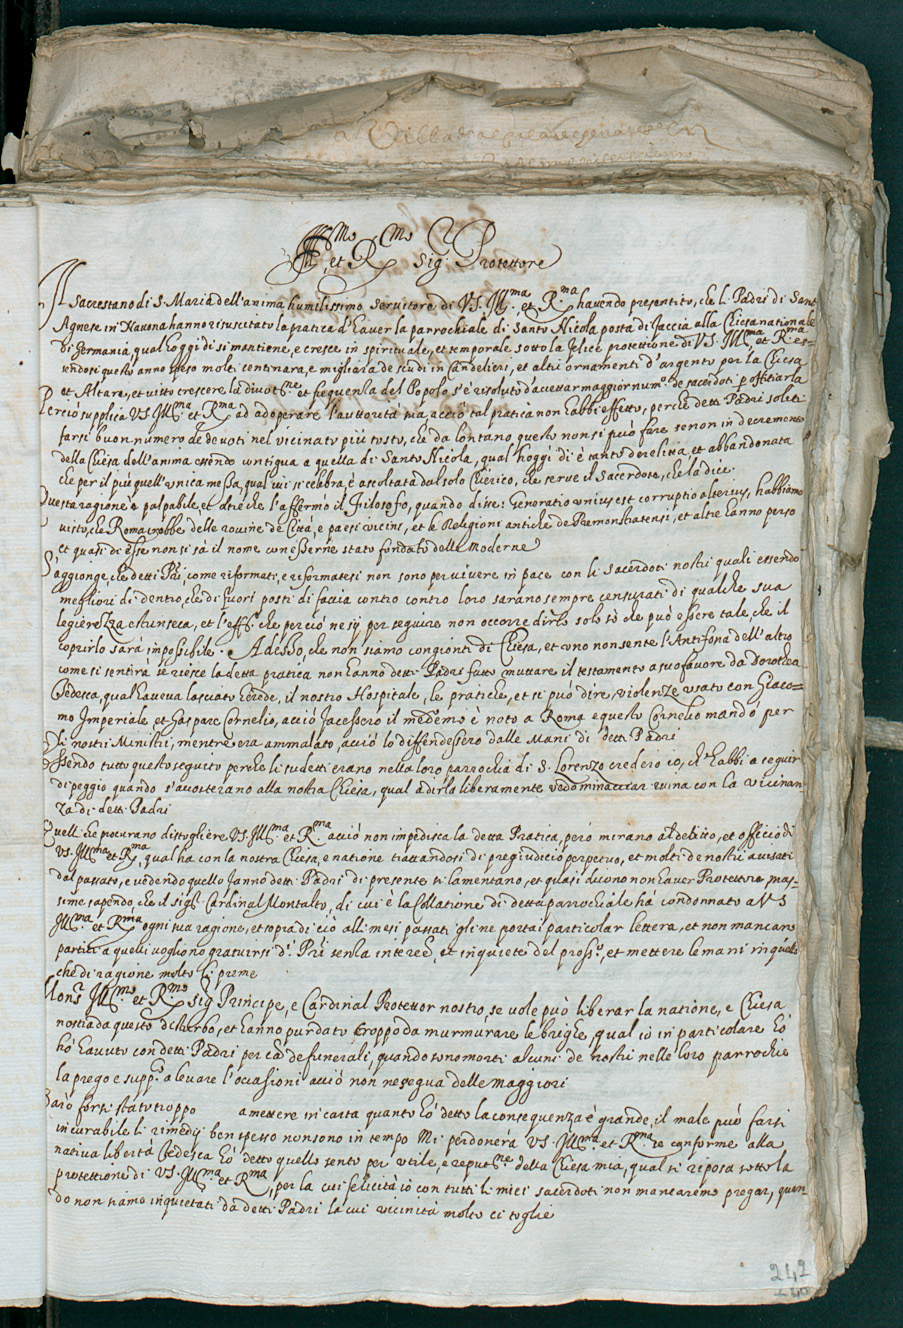 Ill.mo et R.mo Sig.r Protettore
Il sacrestano di S. Maria dell'anima humilissimo servitore di V.S. Ill.ma et R.ma havendo presentito, che li Padri di Sant'
Agnese in Navona hanno risuscitato la pratica d'haver la parrochiale di Santo Nicola posta di faccia alla Chiesa nationale
di Germania, qual hoggi di si mantiene, e cresce in spirituale, et temporale sotto la felice protettione di V.S. Ill.ma et R.ma es=
sendosi questo anno speso molti centinara, e migliara de scudi in Candelieri, et altri ornamenti d'argento per la Chiesa
et Altare, et visto crescere la divot.ne et frequenza del Popolo s'è risoluto d'accettar maggior num.o de sacerdoti p offitiarla
Perciò supplica V.S. Ill.ma et R.ma ad adoperare l'auttorità sua, acciò tal pratica non habbi effetto, perche detti Padri soliti
farsi buon numero de devoti nel vicinato più tosto, che da lontano questo non si può fare se non in decremento
della Chiesa dell'anima essendo contigua a quella di Santo Nicola, qual hoggi di è tanto derelitta, et abbandonata
che per il più quell'unica messa, qual ivi si celebra, è ascoltata dal solo Chierico, che serve il Sacerdote, che la dice.
Questa ragione è palpabile, et oltre che l'affermò il Filosofo, quando disse: Generatio unius est corruptio alterius, habbiamo
visto, che Roma crebbe delle rovine de Città, e paesi vicini, et le Religioni antiche de Premonstratensi, et altre hanno perso
et quasi di esse non si sà il nome con esserne stato fondato delle Moderne
S'aggionge, che detti P.ri come riformati, e riformatesi non sono per vivere in pace con li Sacerdoti nostri quali essendo
megliori di dentro, che di fuori posti di facia contro contro loro sarano sempre censurati di qualche sua
legierezza estrinseca, et l'eff.o che perciò ne sij per seguire non occorre dirlo solo sò che può essere tale, che il
coprirlo sarà impossibile. Adesso, che non siamo congionti di Chiesa, et uno non sente l'Antifona dell'altro
come si sentirà se riesce la detta pratica non hanno detti Padri fatto muttare il testamento a suo favore da Dorothea
Thedesca, qual haveva lasciato herede, il nostro Hospitale, le pratiche, et si può dire, violenze usate con Giaco=
mo Imperiale et Gasparo Cornelio, acciò facessero il medemo è noto a Roma e questo Cornelio mandò per
li nostri Ministri, mentre era ammalato, acciò lo diffendessero dalle Mani di detti Padri
Essendo tutto questo seguito perche li sudetti erano nella loro parrochia di S. Lorenzo crederò io, ch'habbi a seguir
di peggio quando s'accosterano alla nostra Chiesa, qual a dirla liberamente vedo minacciar ruina con la vicinan
za di detti Padri
Quelli che procurano distogliere V.S. Ill.ma et R.ma acciò non impedisca la detta Pratica, però mirano al debito, et officio di
V.S. Ill.ma et R.ma, qual ha con la nostra Chiesa, e natione trattandosi di pregiudicio perpetuo, et molti de nostri avisati
dal passato, e vedendo quello fanno detti Padri di presente si lamentano, et quasi dicono non haver Protettore mas=
sime sapendo, che il sig.r Cardinal Montalto, di cui è la Collatione di detta parrochiale hà condonnato a V.S.
Ill.ma et R.ma ogni sua ragione, et sopra di ciò alli mesi passati gli ne portai particolar lettera, et non mancano
partiti a quelli vogliono gratuirsi d.i P.ri senza interesse, et inquiete del pross.o, et mettere le mani in quello
che di ragione molto li preme
Mons.r Ill.mo et R.mo sig.r Principe, e Cardinal Protettor nostro, se vole può liberar la natione, e Chiesa
nostra da questo disturbo, et hanno pur dato troppo da murmurare le brighe, qual iò in particolare hò
hò havuto con detti Padri per ca.a de funerali, quando sono morti alcuni de nostri nelle loro parrochie
la prego e supp.co a levare l'occasioni acciò non ne segua delle maggiori
Sarò forsi stato troppo a mettere in carta quanto hò detto la consequenza è grande, il male può farsi
incurabile li rimedij ben spesso non sono in tempo Mi perdonerà V.S. Ill.ma et R.ma se conforme alla
nativa libertà Thedesca hò detto quello sento per utile, e reput.ne della Chiesa mia, qual si riposa sotto la
protettione di V.S. Ill.ma et R.ma, per la cui felicità iò con tutti li miei sacerdoti non mancaremo pregar, quan=
do non siamo inquietati dà detti Padri la cui vicinità molto ci toglie
242